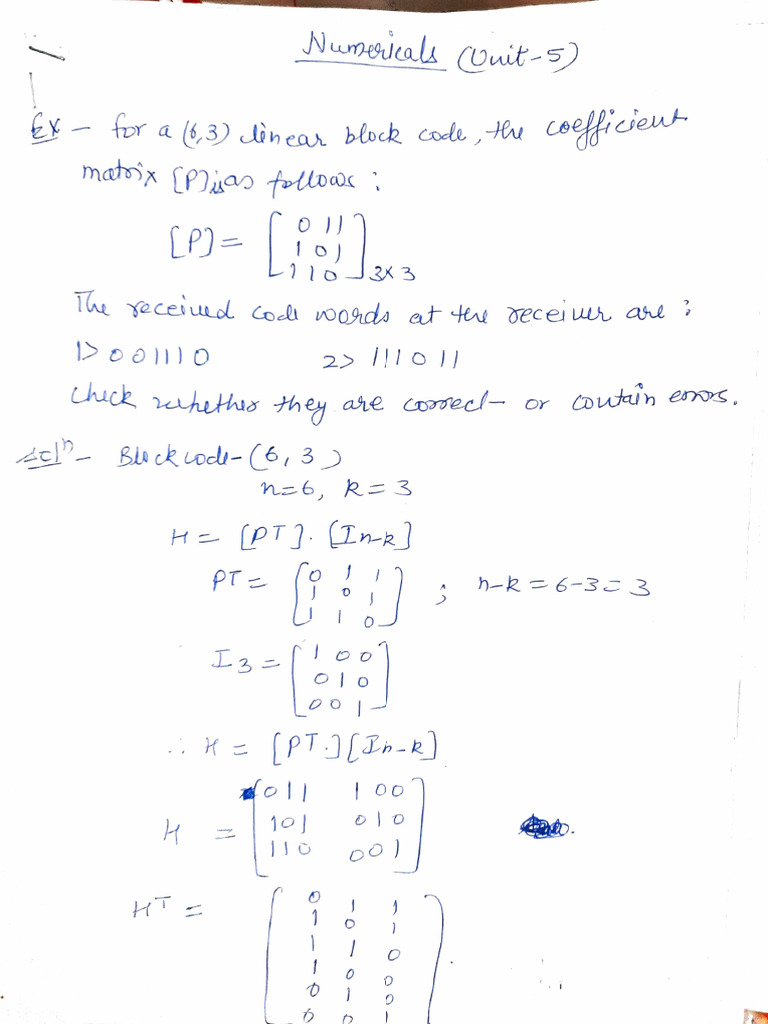 Numericals (Unit-5)
Ex - for a (6,3) linear block code, the coefficient
matrix [P] is as follows :
[P] = [ 0 1 1
1 0 1
1 1 0 ] 3x3
The received code words at the receiver are :
1> 001110 2> 111011
check whether they are correct or contain errors.
Solⁿ - Block code - (6, 3)
n=6, k=3
H = [PT]. [In-k]
PT = [ 0 1 1
1 0 1
1 1 0 ] ; n-k = 6-3 = 3
I3 = [ 1 0 0
0 1 0
0 0 1 ]
∴ H = [PT.][In-k]
H = [ 011 100
101 010
110 001 ]
HT = [ 0 1 1
1 0 1
1 1 0
1 0 0
0 1 0
0 0 1